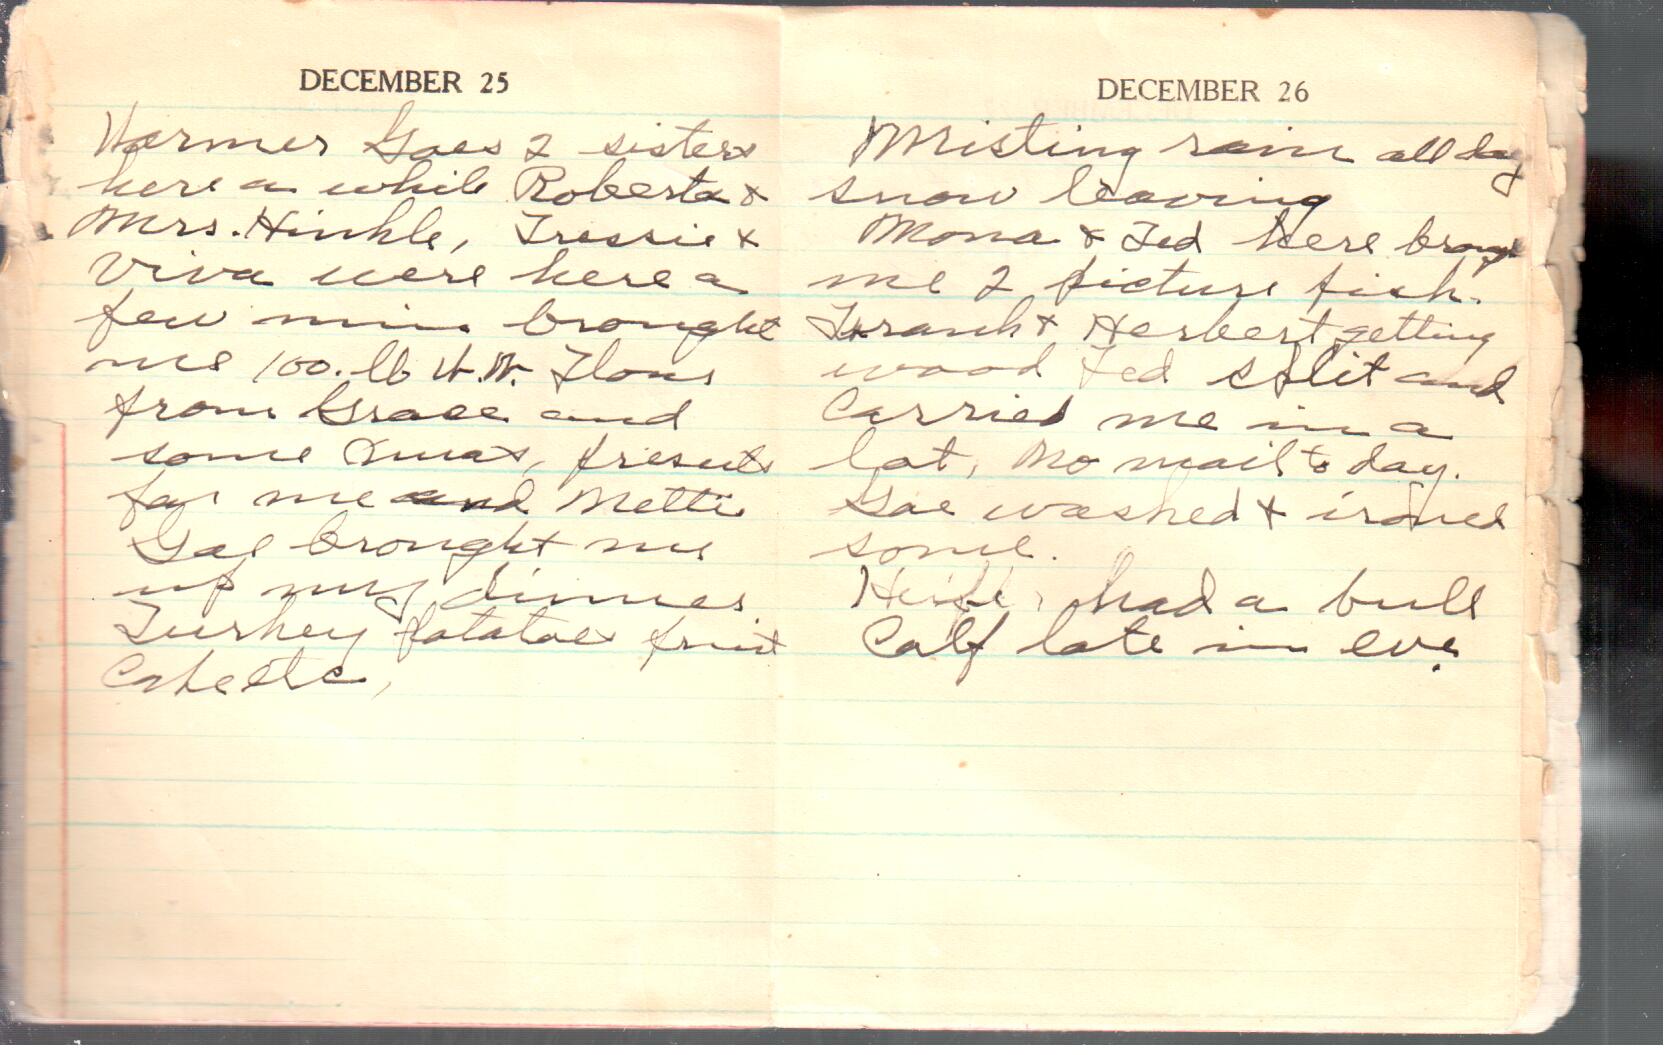 DECEMBER 25
Warmer Gaes 2 sisters
here a while Roberta &
Mrs. Hinkle, Tressie &
Viva were here a
few min brought
me 100. lb W.W. Flour
from Grace and
some Xmas, presents
for me and Mettie
Gae brought me
up my dinner
Turkey potatoes fruit
Cake etc,
DECEMBER 26
Misting rain all day
snow leaving
Mona & Ted here brong
me 2 picture fish.
Frank & Herbert getting
wood Ted split and
Carried me in a
lot, No mail to day.
Gae washed & ironed
some.
had a bull
Calf late in eve.